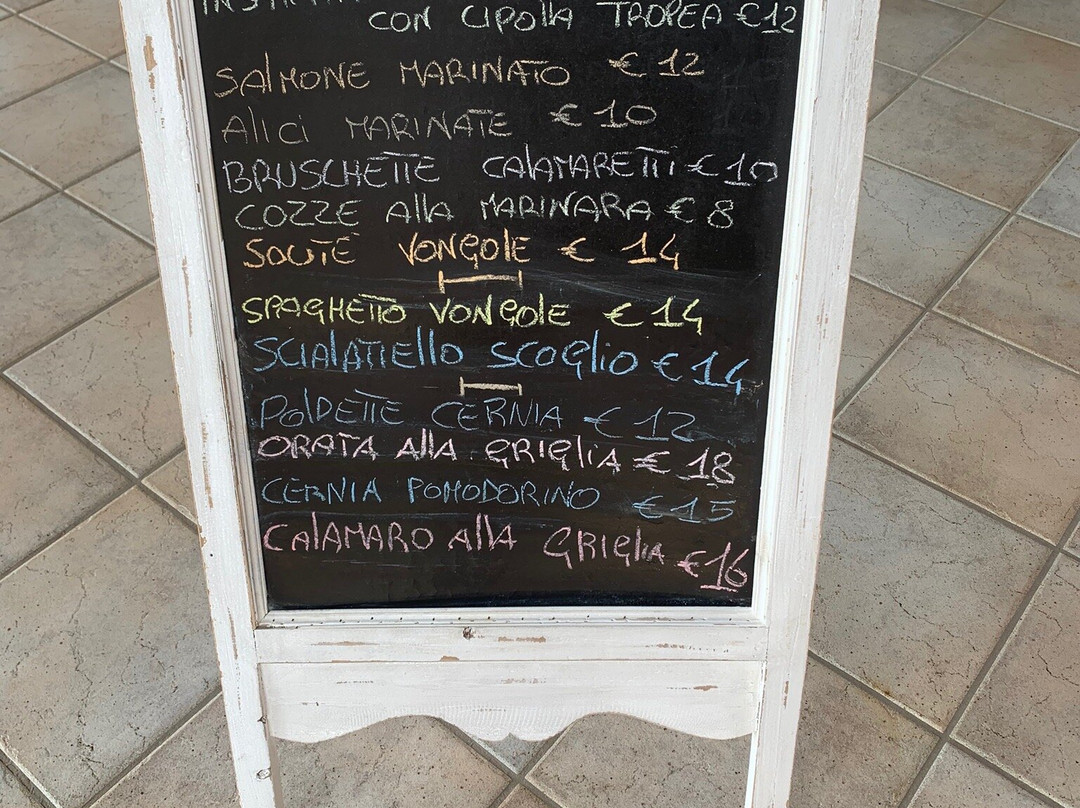 CON CIPOLLA TROPEA €12
SALMONE MARINATO € 12
ALICI MARINATE € 10
BRUSCHETTE CALAMARETTI € 10
COZZE ALLA MARINARA € 8
SOUTÈ VONGOLE € 14
SPAGHETTO VONGOLE € 14
SCIALATIELLO SCOGLIO € 14
POLPETTE CERNIA € 12
ORATA ALLA GRIGLIA € 18
CERNIA POMODORINO € 15
CALAMARO ALLA GRIGLIA € 16